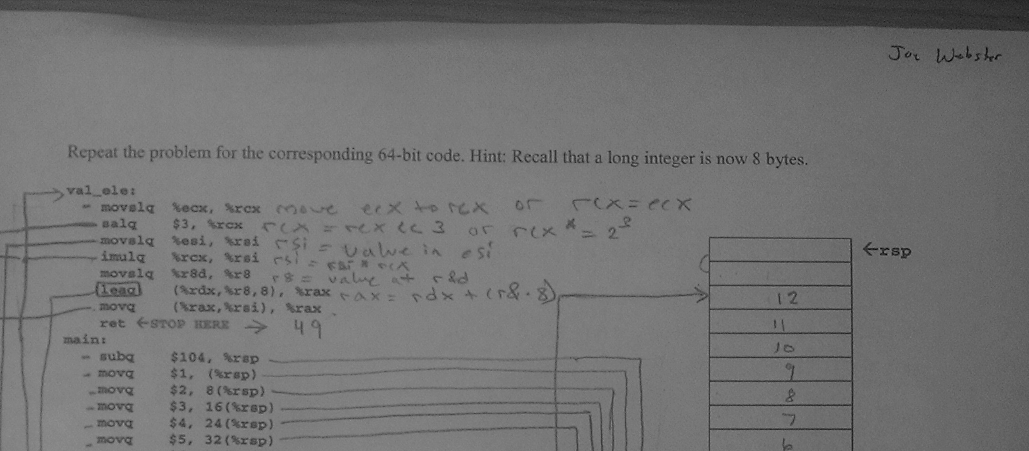 Joe Webster
Repeat the problem for the corresponding 64-bit code. Hint: Recall that a long integer is now 8 bytes.
val_ele:
movslq %ecx, %rcx move ecx to rcx or rcx = ecx
salq $3, %rcx rcx = rcx << 3 or rcx *= 2^3
movslq %esi, %rsi rsi = value in esi
imulq %rcx, %rsi rsi = rsi * rcx
movslq %r8d, %r8 r8 = value at r8d
leaq (%rdx,%r8,8), %rax rax = rdx + (r8·8)
movq (%rax,%rsi), %rax
ret ←STOP HERE → 49
main:
subq $104, %rsp
movq $1, (%rsp)
movq $2, 8(%rsp)
movq $3, 16(%rsp)
movq $4, 24(%rsp)
movq $5, 32(%rsp)
←rsp
12
11
10
9
8
7
6